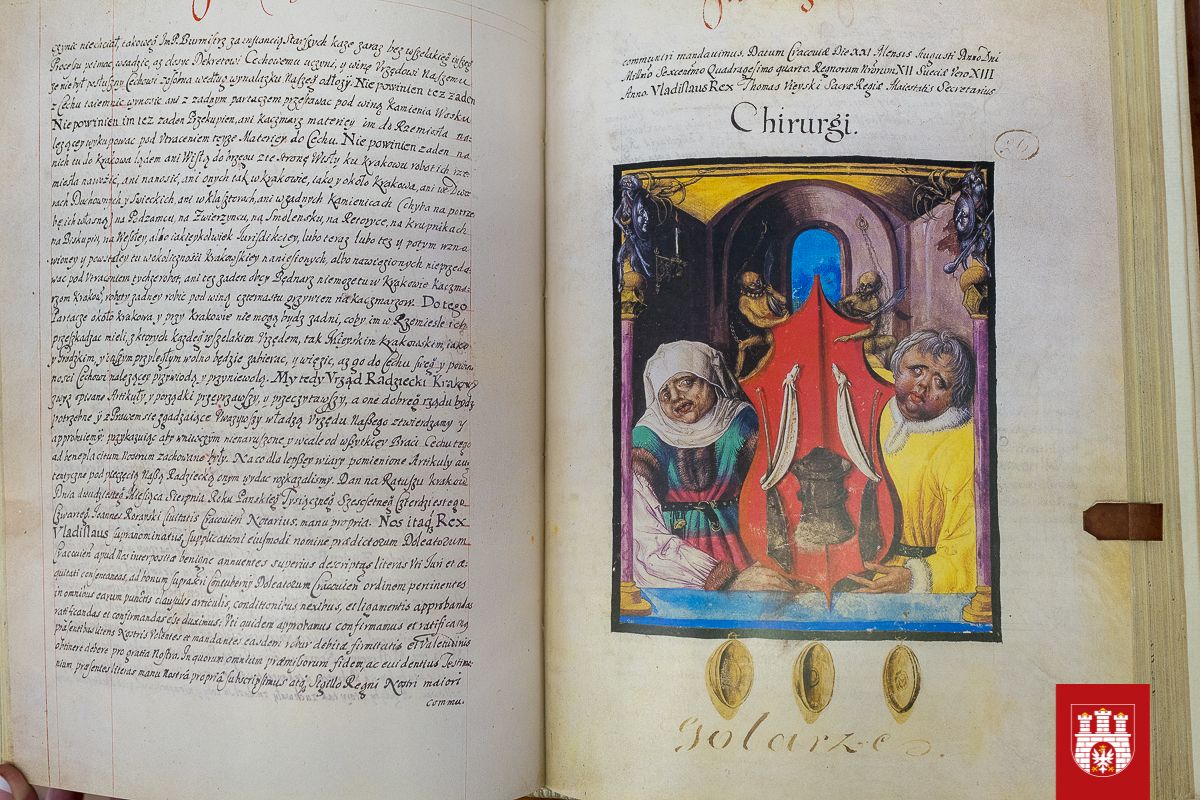 czynic niechciał, takoweg ImP. Burmistrz za instancią Starszych kaze zaraz bez wszelakieg inszeg
Processu poimac, wsadzic, az dosyc Dekretowi Cechowemu uczyni, y winę Vrzędowi Naszemu
ze niebył posłuszny Cechowi zosobna według wynalazku Naszeg odłozy. Nie powinien tez zaden
z Cechu taiemnie wynosic, ani z zadnym partaczem przestawac pod winą Kamienia Wosku
Nie powinien im tez zaden Przekupien, ani kaczmarz materiey im do Rzemiosła na-
lezącey wykupowac pod Vtraceniem teyze Materiey do Cechu. Nie powinien zaden na
nich tu do krakowa lądem ani Wisłą do brzegu z te Stronę Wisły ku krakowu robot ich rze-
miesła nawozic, ani nanosic, ani onych tak w krakowie, iako y około krakowa, ani we Dwo-
rach Duchownych y Swieckich, ani w klasztorach, ani w zadnych Kamienicach Chyba na potrze-
bę ich własną, na Podzamcu, na Zwierzyncu, na Smolensku, na Retoryce, na krupnikach
na Biskupiu, na Wesołey, albo iakieykolwiek Jurisdikciey, lubo teraz lubo tez y potym wzno-
wioney y powstałey tu w okoliczności krakowskiey naniesionych, albo nawiezionych nieprzeda-
wac pod Vtraceniem tychze robot, ani tez zaden obcy Bednarz niemoze tu w Krakowie kaczma-
rzom Krakow, roboty zadney robic pod winą czternastu grzywien na kaczmarzow. Do teg
Partacze około krakowa y przy Krakowie nie mogą bydz zadni, coby im w Rzemiesle ich
przeszkadzac mieli, z ktorych kazdeg wszelakim Vrzędem, tak Mieyskim krakowskim, iako
y Grodzkim, y inszym przyległym wolno będzie zabierac, y więzic, az go do Cechu sweg y powin-
nosci Cechowi nalezącey przywiodą y przyniewolą. My tedy Vrząd Radziecki Krakow
zwyz opisane Artikuły, y porządki przeyzrawszy, y przeczytawszy, a one dobreg rządu bydz
potrzebne y z Prawem sie zgadzaiące Vwazywszy władzą Vrzędu Naszego ztwierdzamy y
approbuiemy: przykazuiąc aby wniwczym nienaruszone, y wcale od wszytkiey Braci Cechu tego
ad beneplacitum Nostrum zachowane były. Na co dla lepszey wiary pomienione Artikuły au-
tentyczne pod pieczęcią Naszą Radziecką onym wydac rozkazalismy. Dan na Ratuszu krakow
Dnia dwudziesteg Miesiąca Sierpnia Roku Panskieg Tysiączneg Szescsetneg Czterdziestego
Czwarteg. Joannes Roranski Ciuitatis Cracouien Notarius, manu propria. Nos itaq Rex
Vladislaus supranominatus supplicationi eiusmodi nomine prædictorum Doleatorum
Cracouien apud Nos interpositæ benigne annuentes superius descriptas literas Vti Juri et æ-
quitati consentaneas, ad bonum suprascri Contuberny Doleatorum Cracouien ordinem pertinentes
in omnibus earum punctis clausulis articulis, conditionibus nexibus, et ligamentis approbandas
ratificandas et confirmandas esse duximus: Vti quidem approbamus confirmamus et ratificamus
præsentibus literis Nostris Volentes et mandantes easdem robur debitæ firmitatis et Valetudinis
obtinere debere pro gratia Nostra. In quorum omnium præmissorum fidem, ac euidentius Testimo-
nium, præsentes literas manu Nostra propria subscripsimus atq Sigillo Regni Nostri maiori
commu.
communiri mandauimus. Datum Cracouiæ Die XXI Mensis Augusti Anno Dni
Millmo Sexcentmo Quadragesimo quarto. Regnorum Nrorum XII Sueciæ Vero XIII
Anno. Vladislaus Rex Thomas Vieyski Sacræ Regiæ Maiestatis Secretarius
Chirurgi.
Golarze